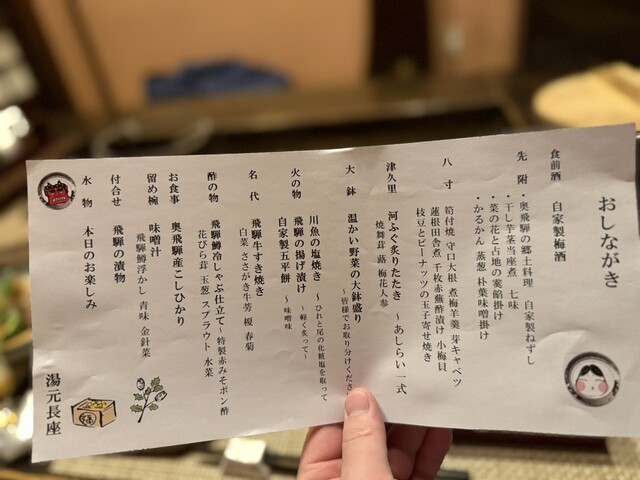 おしながき
食前酒 自家製梅酒
先附 ・奥飛騨の郷土料理 自家製ねずし
・干し芋茎当座煮 七味
・菜の花と占地の蓑餡掛け
・かるかん 蒸葱 朴葉味噌掛け
八寸 筍付焼 守口大根 煮梅羊羹 芽キャベツ
蓮根田舎煮 千枚赤蕪酢漬け 小梅貝
枝豆とピーナッツの玉子寄せ焼き
津久里 河ふぐ炙りたたき ～あしらい一式
焼舞茸 蕗 梅花人参
大鉢 温かい野菜の大鉢盛り
～皆様でお取り分けくださ
火の物 川魚の塩焼き ～ひれと尾の化粧塩を取って
飛騨の揚げ漬け ～軽く炙って～
自家製五平餅 ～味噌味
名代 飛騨牛すき焼き
白菜 ささがき牛蒡 榎 春菊
酢の物 飛騨鱒冷しゃぶ仕立て～特製赤みそポン酢
花びら茸 玉葱 スプラウト 水菜
お食事 奥飛騨産こしひかり
留め椀 味噌汁
飛騨鱒浮かし 青味 金針菜
付合せ 飛騨の漬物
水物 本日のお楽しみ
湯元長座